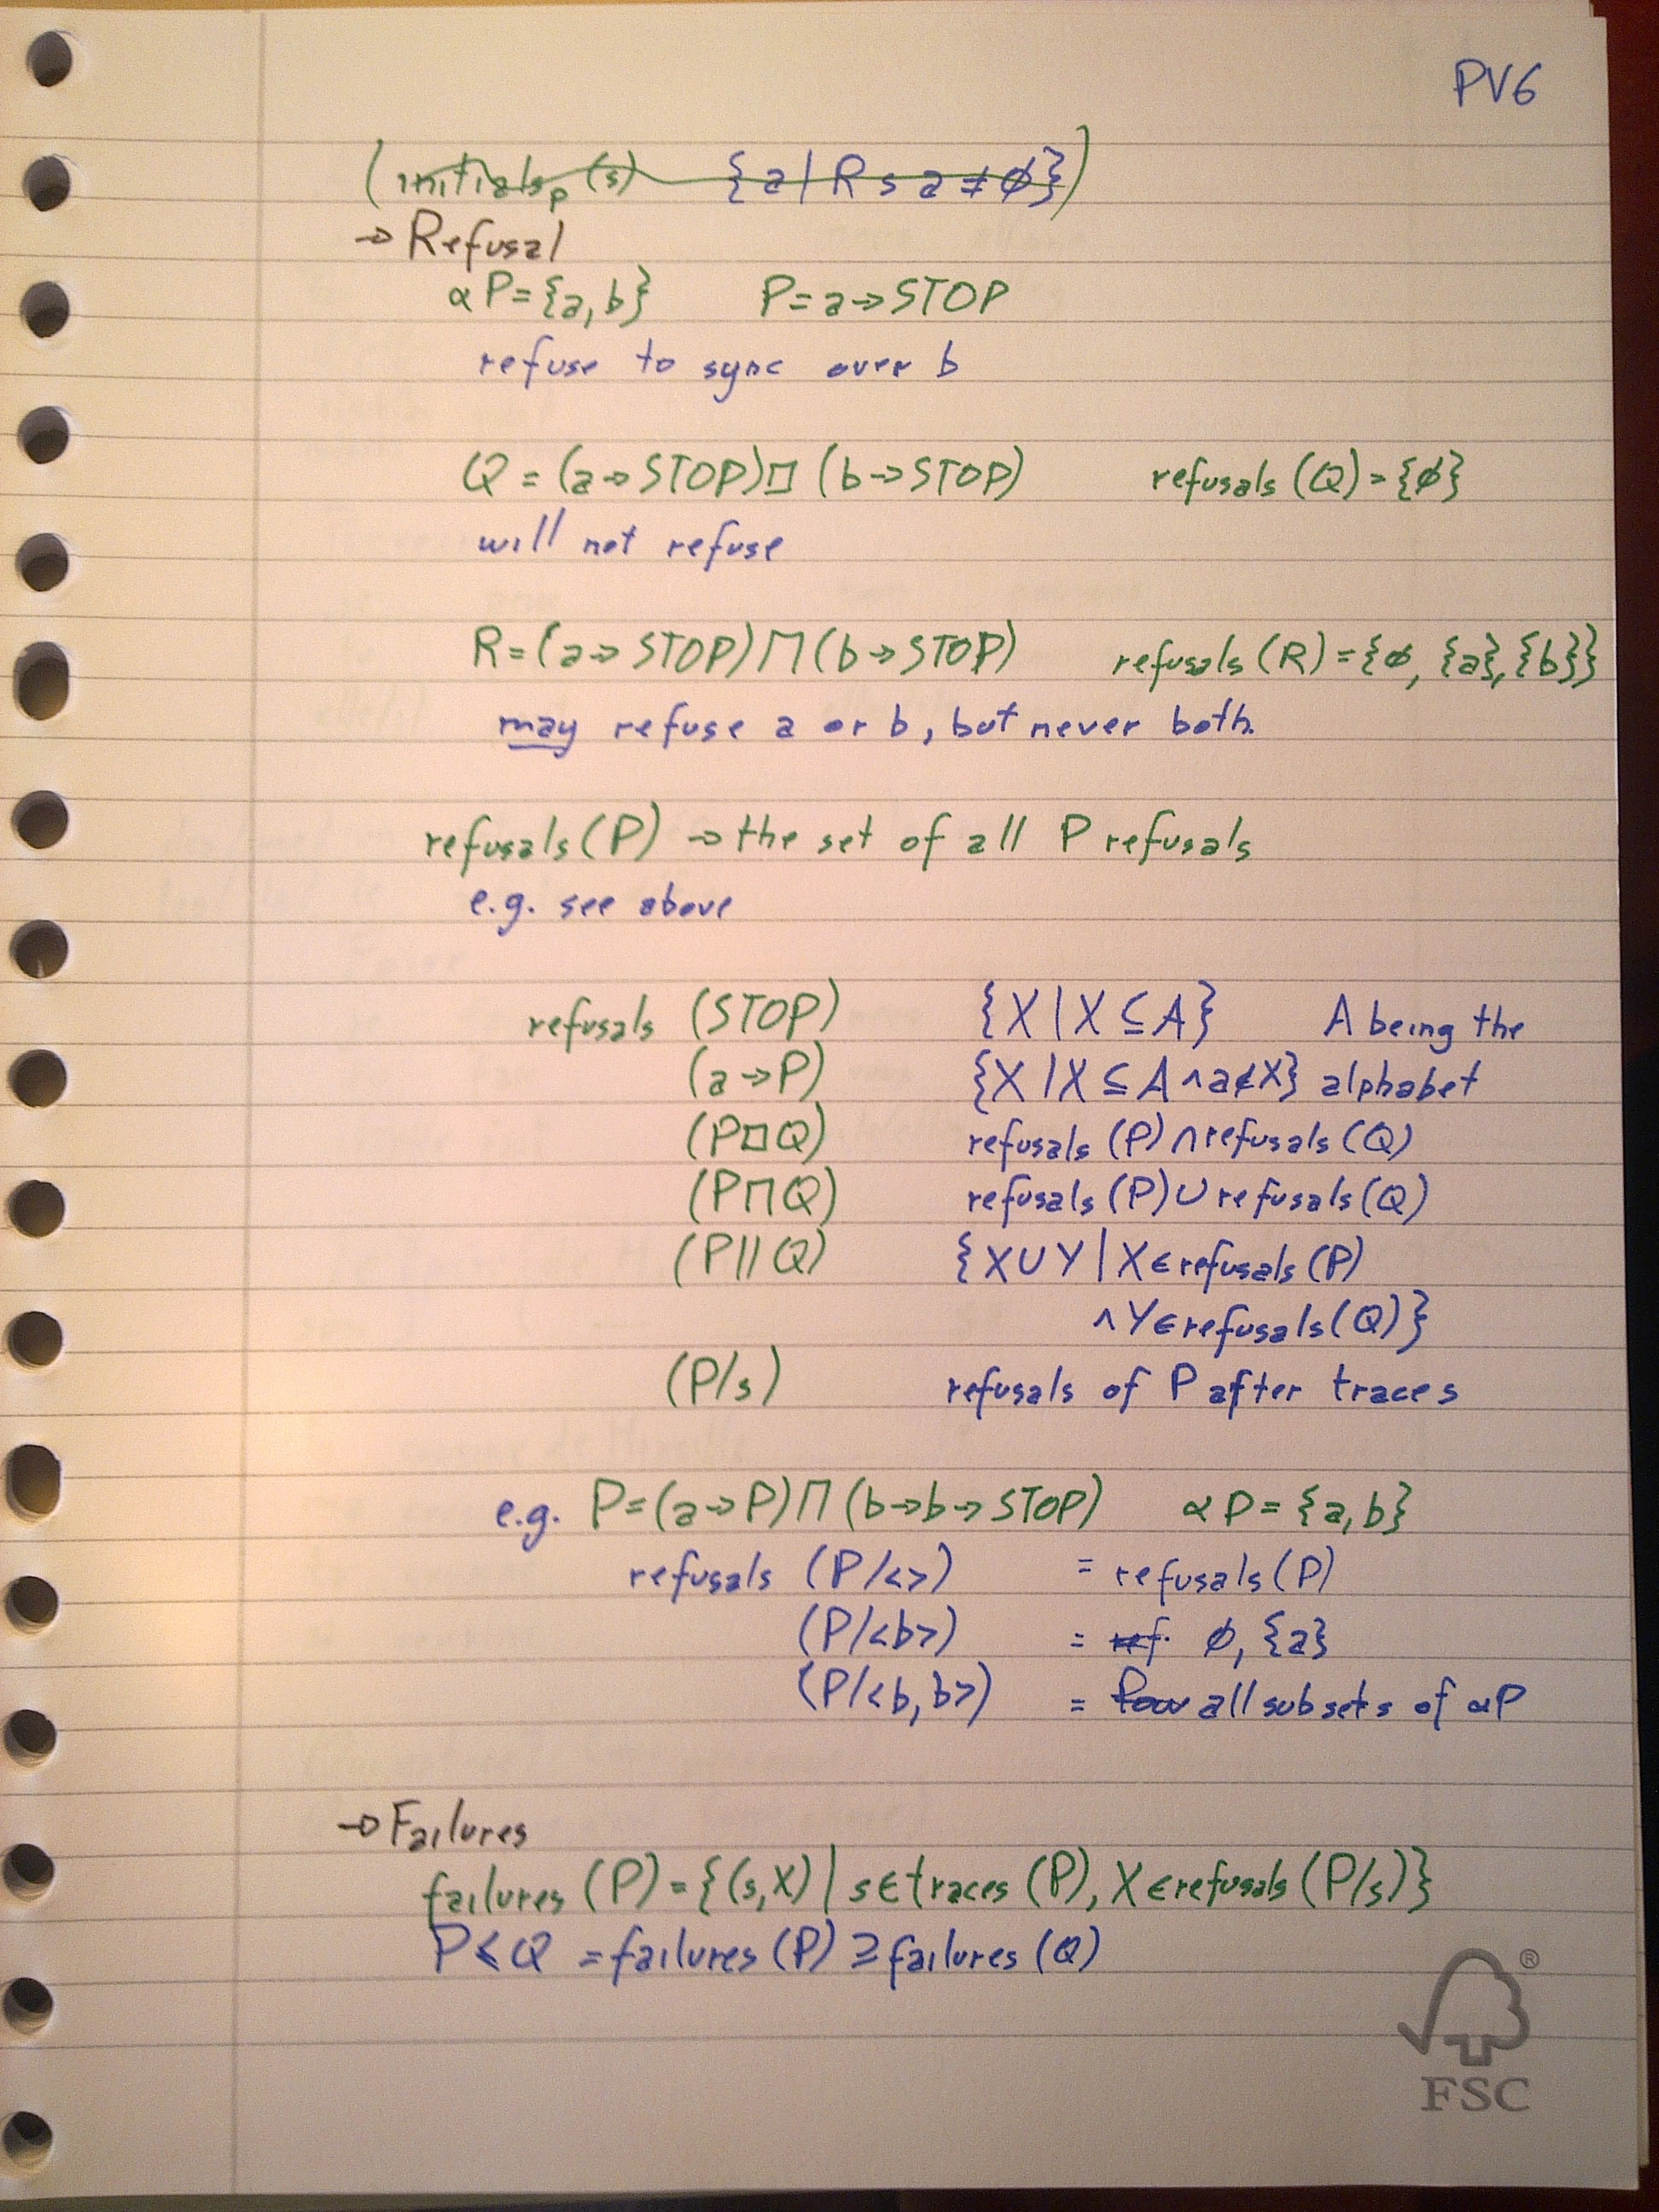 PV6
(initials_P(s) {a | R s a ≠ ∅})
→ Refusal
αP={a,b} P=a→STOP
refuse to sync over b
Q = (a→STOP)□(b→STOP) refusals(Q)={∅}
will not refuse
R=(a→STOP)⊓(b→STOP) refusals(R)={∅, {a},{b}}
may refuse a or b, but never both.
refusals(P) → the set of all P refusals
e.g. see above
refusals (STOP) {X | X ⊆ A} A being the
(a→P) {X | X ⊆ A ∧ a∉X} alphabet
(P□Q) refusals(P)∩refusals(Q)
(P⊓Q) refusals(P)∪refusals(Q)
(P||Q) {X∪Y | X∈refusals(P)
∧ Y∈refusals(Q)}
(P/s) refusals of P after trace s
e.g. P=(a→P)⊓(b→b→STOP) αP={a,b}
refusals (P/<>) = refusals(P)
(P/<b>) = ref. ∅, {a}
(P/<b,b>) = all subsets of αP
→ Failures
failures(P)={(s,X) | s∈traces(P), X∈refusals(P/s)}
P⩽Q = failures(P) ⊇ failures(Q)
®
FSC